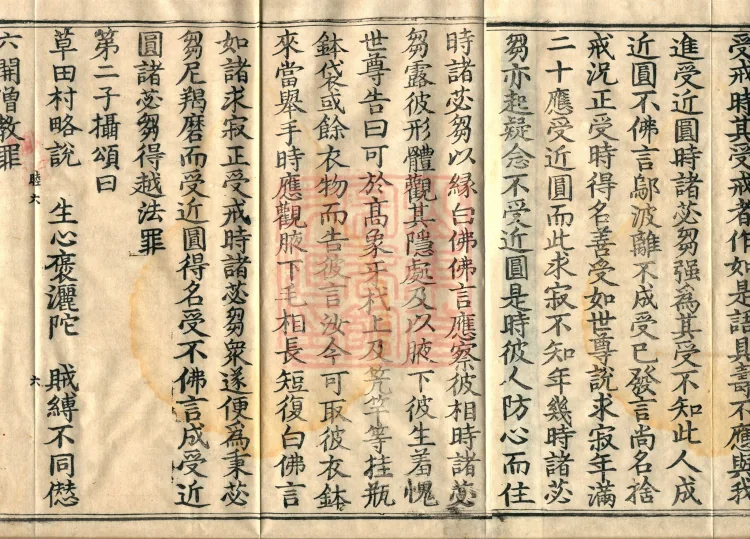 受戒時其受戒者作如是語具壽不應與我
進受近圓時諸苾芻强為其受不知此人成
近圓不佛言鄔波離不成受已發言尚名捨
戒況正受時得名善受如世尊說求寂年滿
二十應受近圓而此求寂不知年幾時諸苾
芻亦起疑念不受近圓是時彼人防心而住
時諸苾芻以緣白佛佛言應察彼相時諸苾
芻露彼形體觀其隱處及以腋下彼生羞愧
世尊告曰可於高象牙杙上及笐竿等挂瓶
鉢袋或餘衣物而告彼言汝今可取彼衣鉢
來當舉手時應觀腋下毛相長短復白佛言
如諸求寂正受戒時諸苾芻衆遂便為秉苾
芻尼羯磨而受近圓得名受不佛言成受近
圓諸苾芻得越法罪
第二子攝頌曰
草田村略說 生心褒灑陀 賊縛不同愆
睦六 六
六開僧教罪